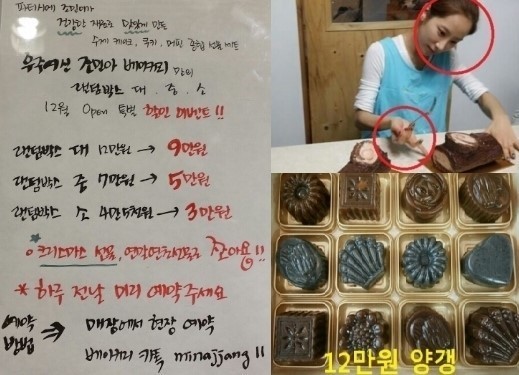 파티시에 조민아가
건강한 재료로 달달하게 만든
수제 케이크, 쿠키, 머핀, 혼합 선물세트
우주여신 조민아 베이커리 만의
랜덤박스 대·중·소
12월 Open 특별 할인 이벤트!!
랜덤박스 대 12만원 → 9만원
랜덤박스 중 7만원 → 5만원
랜덤박스 소 4만5천원 → 3만원
크리스마스 선물, 연말연초선물로 좋아용!!
* 하루 전날 미리 예약주세요
예약 방법 ⇒ 매장에서 현장 예약
베이커리 카톡 minajjang!!
12만원 양갱